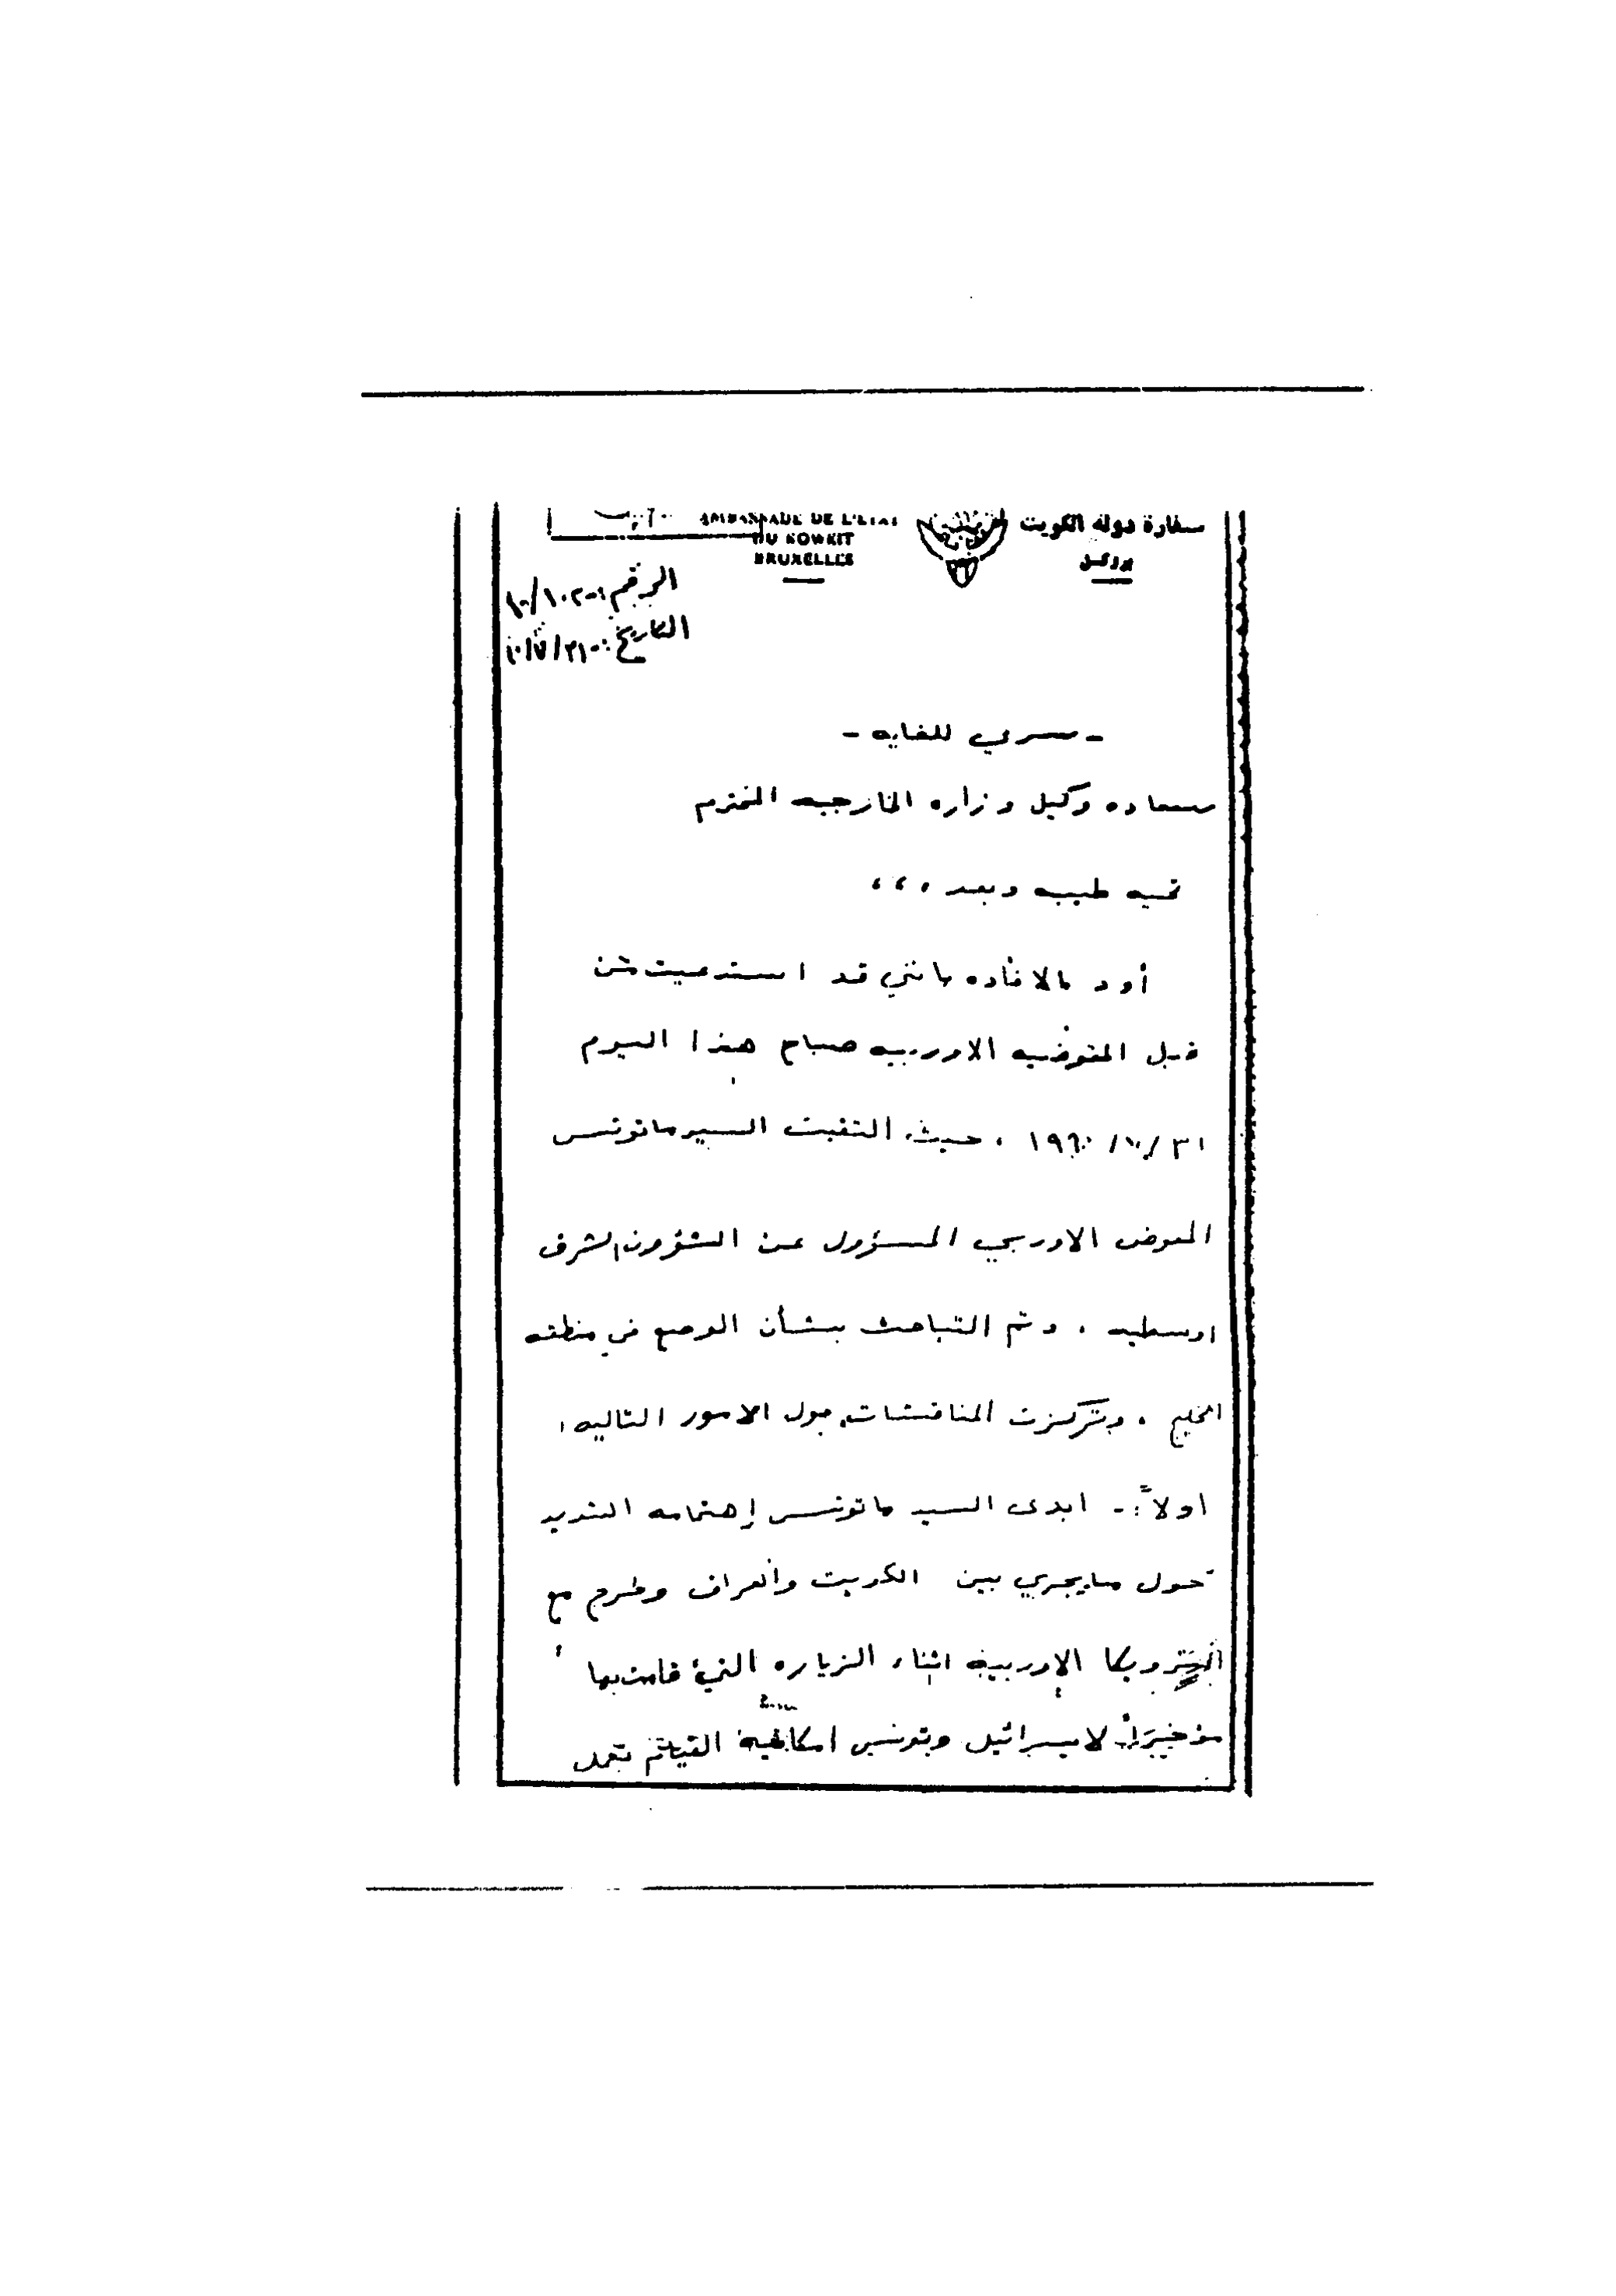 سفارة دولة الكويت
بروكسل
AMBASSADE DE L'ETAT
DU KOWEIT
BRUXELLES
الرقم :-
التاريخ :-
- سري للغايه -
سعاده وكيل وزاره الخارجيه المحترم
تحيه طيبه وبعد ،،،
أود بالافاده بانني قد استدعيت من
قبل المفوضيه الاوربيه صباح هذا اليوم
حيث التقيت السيد ماتوتس
المفوض الاوربي المسؤول عن الشؤون الشرق
اوسطيه . وتم التباحث بشأن الوضع في منطقه
الخليج . وتركزت المناقشات حول الامور التاليه :
اولاً :- ابدى السيد ماتوتس إهتمامه الشديد
حول مايجري بين الكويت والعراق وطرح مع
الترويكا الاوربيه اثناء الزياره التي قامت بها
مؤخراً لاسرائيل وتونس امكانية القيام بعمل